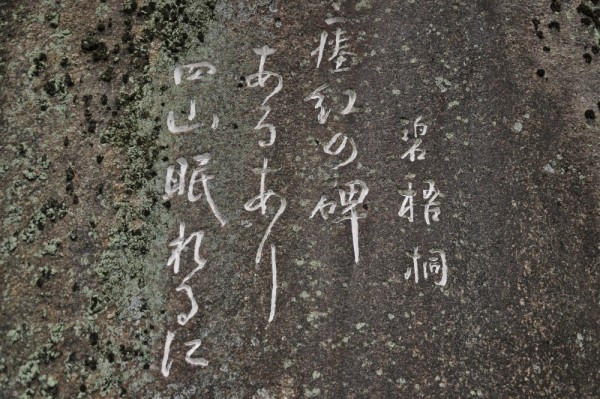 碧梧桐
紅の碑
あるあり
四山眠れるに